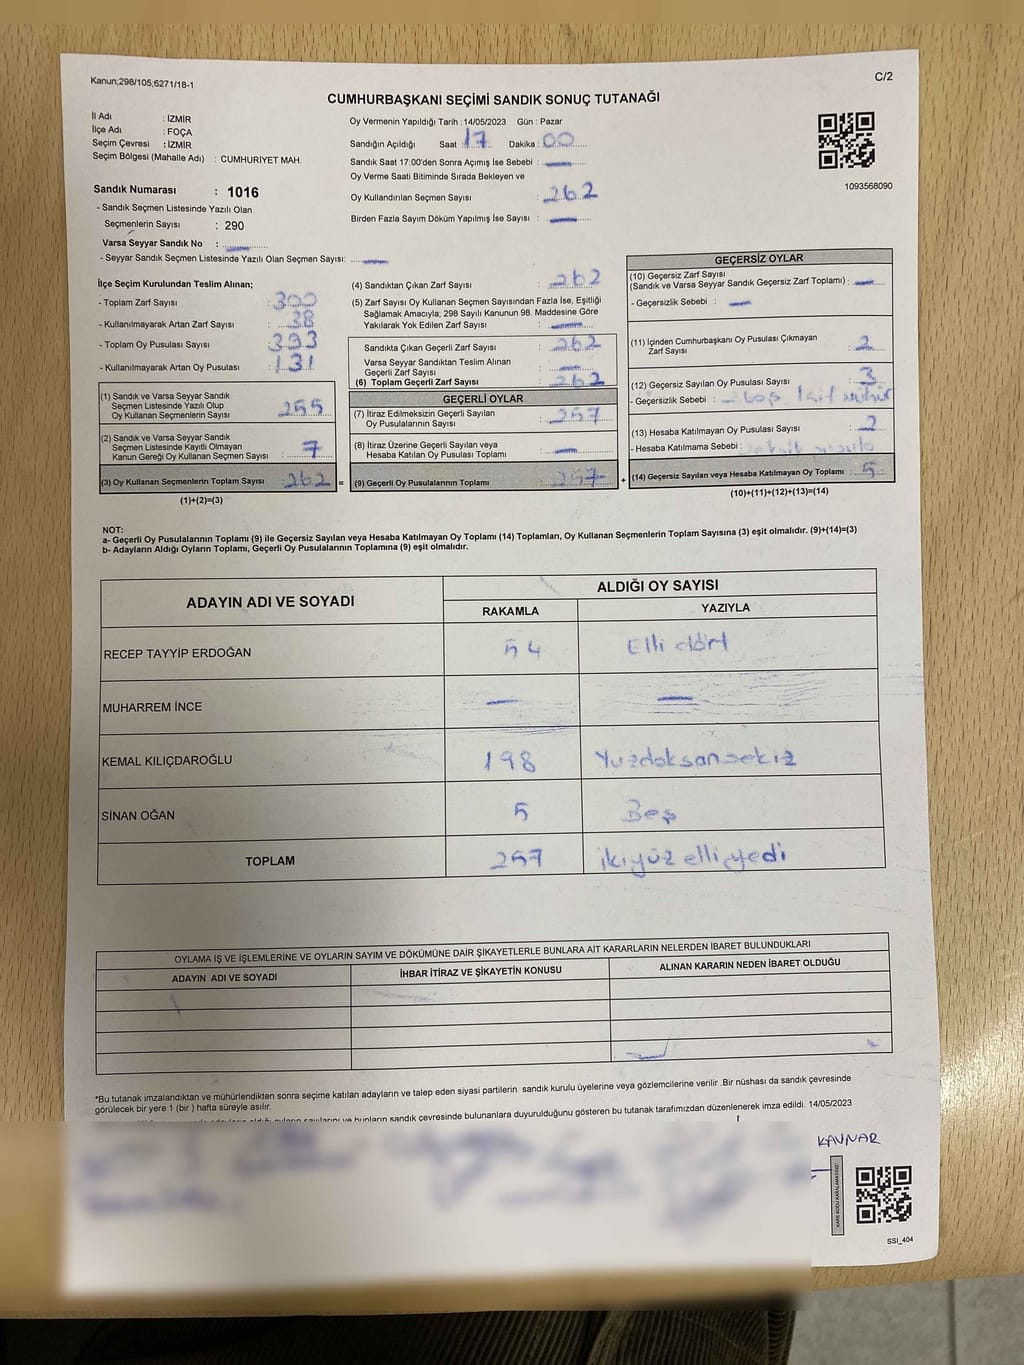 Kanun;298/105;6271/18-1
C/2
CUMHURBAŞKANI SEÇİMİ SANDIK SONUÇ TUTANAĞI
İl Adı : İZMİR
İlçe Adı : FOÇA
Seçim Çevresi : İZMİR
Seçim Bölgesi (Mahalle Adı) : CUMHURİYET MAH.
Sandık Numarası : 1016
- Sandık Seçmen Listesinde Yazılı Olan
Seçmenlerin Sayısı : 290
Varsa Seyyar Sandık No :
- Seyyar Sandık Seçmen Listesinde Yazılı Olan Seçmen Sayısı:
Oy Vermenin Yapıldığı Tarih :14/05/2023 Gün : Pazar
Sandığın Açıldığı Saat : 17 Dakika : 00
Sandık Saat 17:00'den Sonra Açımış İse Sebebi : —
Oy Verme Saati Bitiminde Sırada Bekleyen ve
Oy Kullandırılan Seçmen Sayısı : 262
Birden Fazla Sayım Döküm Yapılmış İse Sayısı : —
1093568090
İlçe Seçim Kurulundan Teslim Alınan;
- Toplam Zarf Sayısı : 300
- Kullanılmayarak Artan Zarf Sayısı : 38
- Toplam Oy Pusulası Sayısı : 393
- Kullanılmayarak Artan Oy Pusulası : 131
(1) Sandık ve Varsa Seyyar Sandık
Seçmen Listesinde Yazılı Olup
Oy Kullanan Seçmenlerin Sayısı : 255
(2) Sandık ve Varsa Seyyar Sandık
Seçmen Listesinde Kayıtlı Olmayan
Kanun Gereği Oy Kullanan Seçmen Sayısı : 7
(3) Oy Kullanan Seçmenlerin Toplam Sayısı : 262 =
(1)+(2)=(3)
(4) Sandıktan Çıkan Zarf Sayısı : 262
(5) Zarf Sayısı Oy Kullanan Seçmen Sayısından Fazla İse, Eşitliği
Sağlamak Amacıyla; 298 Sayılı Kanunun 98. Maddesine Göre
Yakılarak Yok Edilen Zarf Sayısı : —
Sandıkta Çıkan Geçerli Zarf Sayısı : 262
Varsa Seyyar Sandıktan Teslim Alınan
Geçerli Zarf Sayısı : —
(6) Toplam Geçerli Zarf Sayısı : 262
GEÇERLİ OYLAR
(7) İtiraz Edilmeksizin Geçerli Sayılan
Oy Pusulasının Sayısı : 257
(8) İtiraz Üzerine Geçerli Sayılan veya
Hesaba Katılan Oy Pusulası Toplamı : —
(9) Geçerli Oy Pusulalarının Toplamı : 257 +
GEÇERSİZ OYLAR
(10) Geçersiz Zarf Sayısı
(Sandık ve Varsa Seyyar Sandık Geçersiz Zarf Toplamı) : —
- Geçersizlik Sebebi : —
(11) İçinden Cumhurbaşkanı Oy Pusulası Çıkmayan
Zarf Sayısı : 2
(12) Geçersiz Sayılan Oy Pusulası Sayısı : 3
- Geçersizlik Sebebi : boş
(13) Hesaba Katılmayan Oy Pusulası Sayısı : 2
- Hesaba Katılmama Sebebi :
(14) Geçersiz Sayılan veya Hesaba Katılmayan Oy Toplamı : 5
(10)+(11)+(12)+(13)=(14)
NOT:
a- Geçerli Oy Pusulalarının Toplamı (9) ile Geçersiz Sayılan veya Hesaba Katılmayan Oy Toplamı (14) Toplamları, Oy Kullanan Seçmenlerin Toplam Sayısına (3) eşit olmalıdır. (9)+(14)=(3)
b- Adayların Aldığı Oyların Toplamı, Geçerli Oy Pusulalarının Toplamına (9) eşit olmalıdır.
ADAYIN ADI VE SOYADI
ALDIĞI OY SAYISI
RAKAMLA YAZIYLA
RECEP TAYYİP ERDOĞAN 54 Elli dört
MUHARREM İNCE — —
KEMAL KILIÇDAROĞLU 198 Yuzdoksansekiz
SİNAN OĞAN 5 Beş
TOPLAM 257 ikiyüz elliyedi
OYLAMA İŞ VE İŞLEMLERİNE VE OYLARIN SAYIM VE DÖKÜMÜNE DAİR ŞİKAYETLERLE BUNLARA AİT KARARLARIN NELERDEN İBARET BULUNDUKLARI
ADAYIN ADI VE SOYADI İHBAR İTİRAZ VE ŞİKAYETİN KONUSU ALINAN KARARIN NEDEN İBARET OLDUĞU
*Bu tutanak imzalandıktan ve mühürlendikten sonra seçime katılan adayların ve talep eden siyasi partilerin sandık kurulu üyelerine veya gözlemcilerine verilir .Bir nüshası da sandık çevresinde
görülecek bir yere 1 (bir ) hafta süreyle asılır.
oyların sayılarını ve bunların sandık çevresinde bulunanlara duyurulduğunu gösteren bu tutanak tarafımızdan düzenlenerek imza edildi. 14/05/2023
KAYNAR
KARE KODU KARALAMAYINIZ!
SSI_404